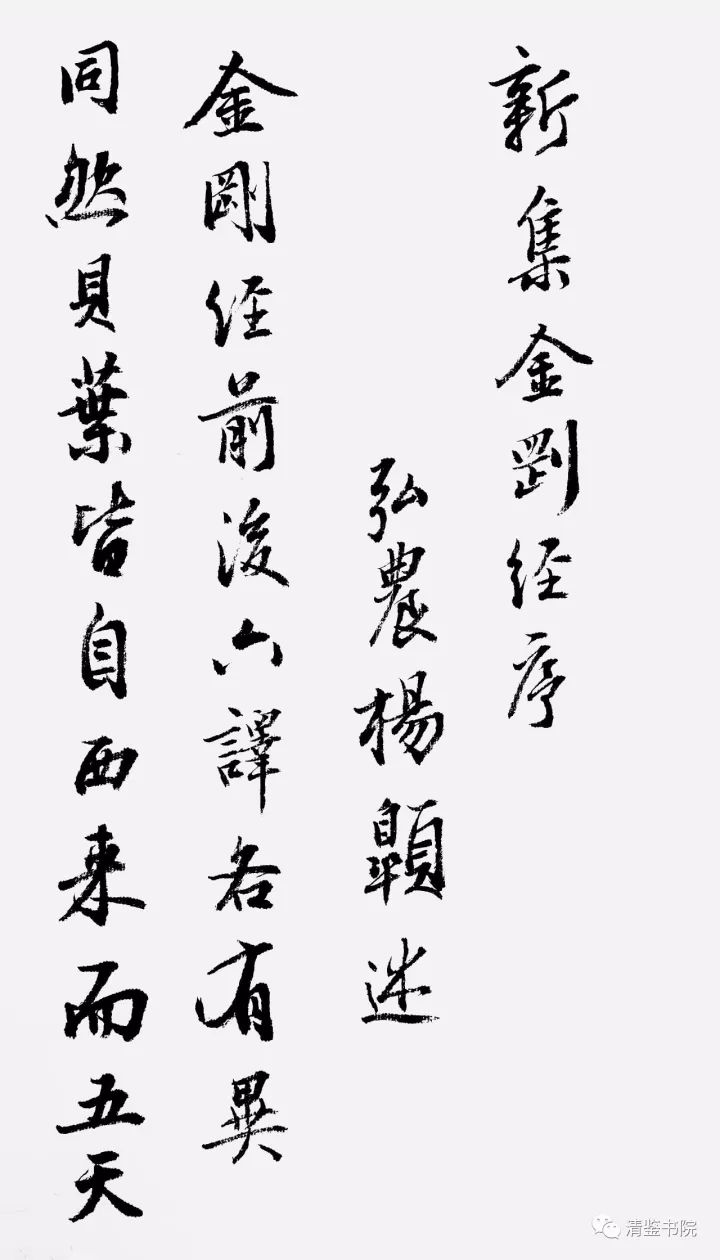 新集金剛經序
弘農楊述
金剛經前後六譯各有異
同然貝葉皆自西来而五天
清鉴书院